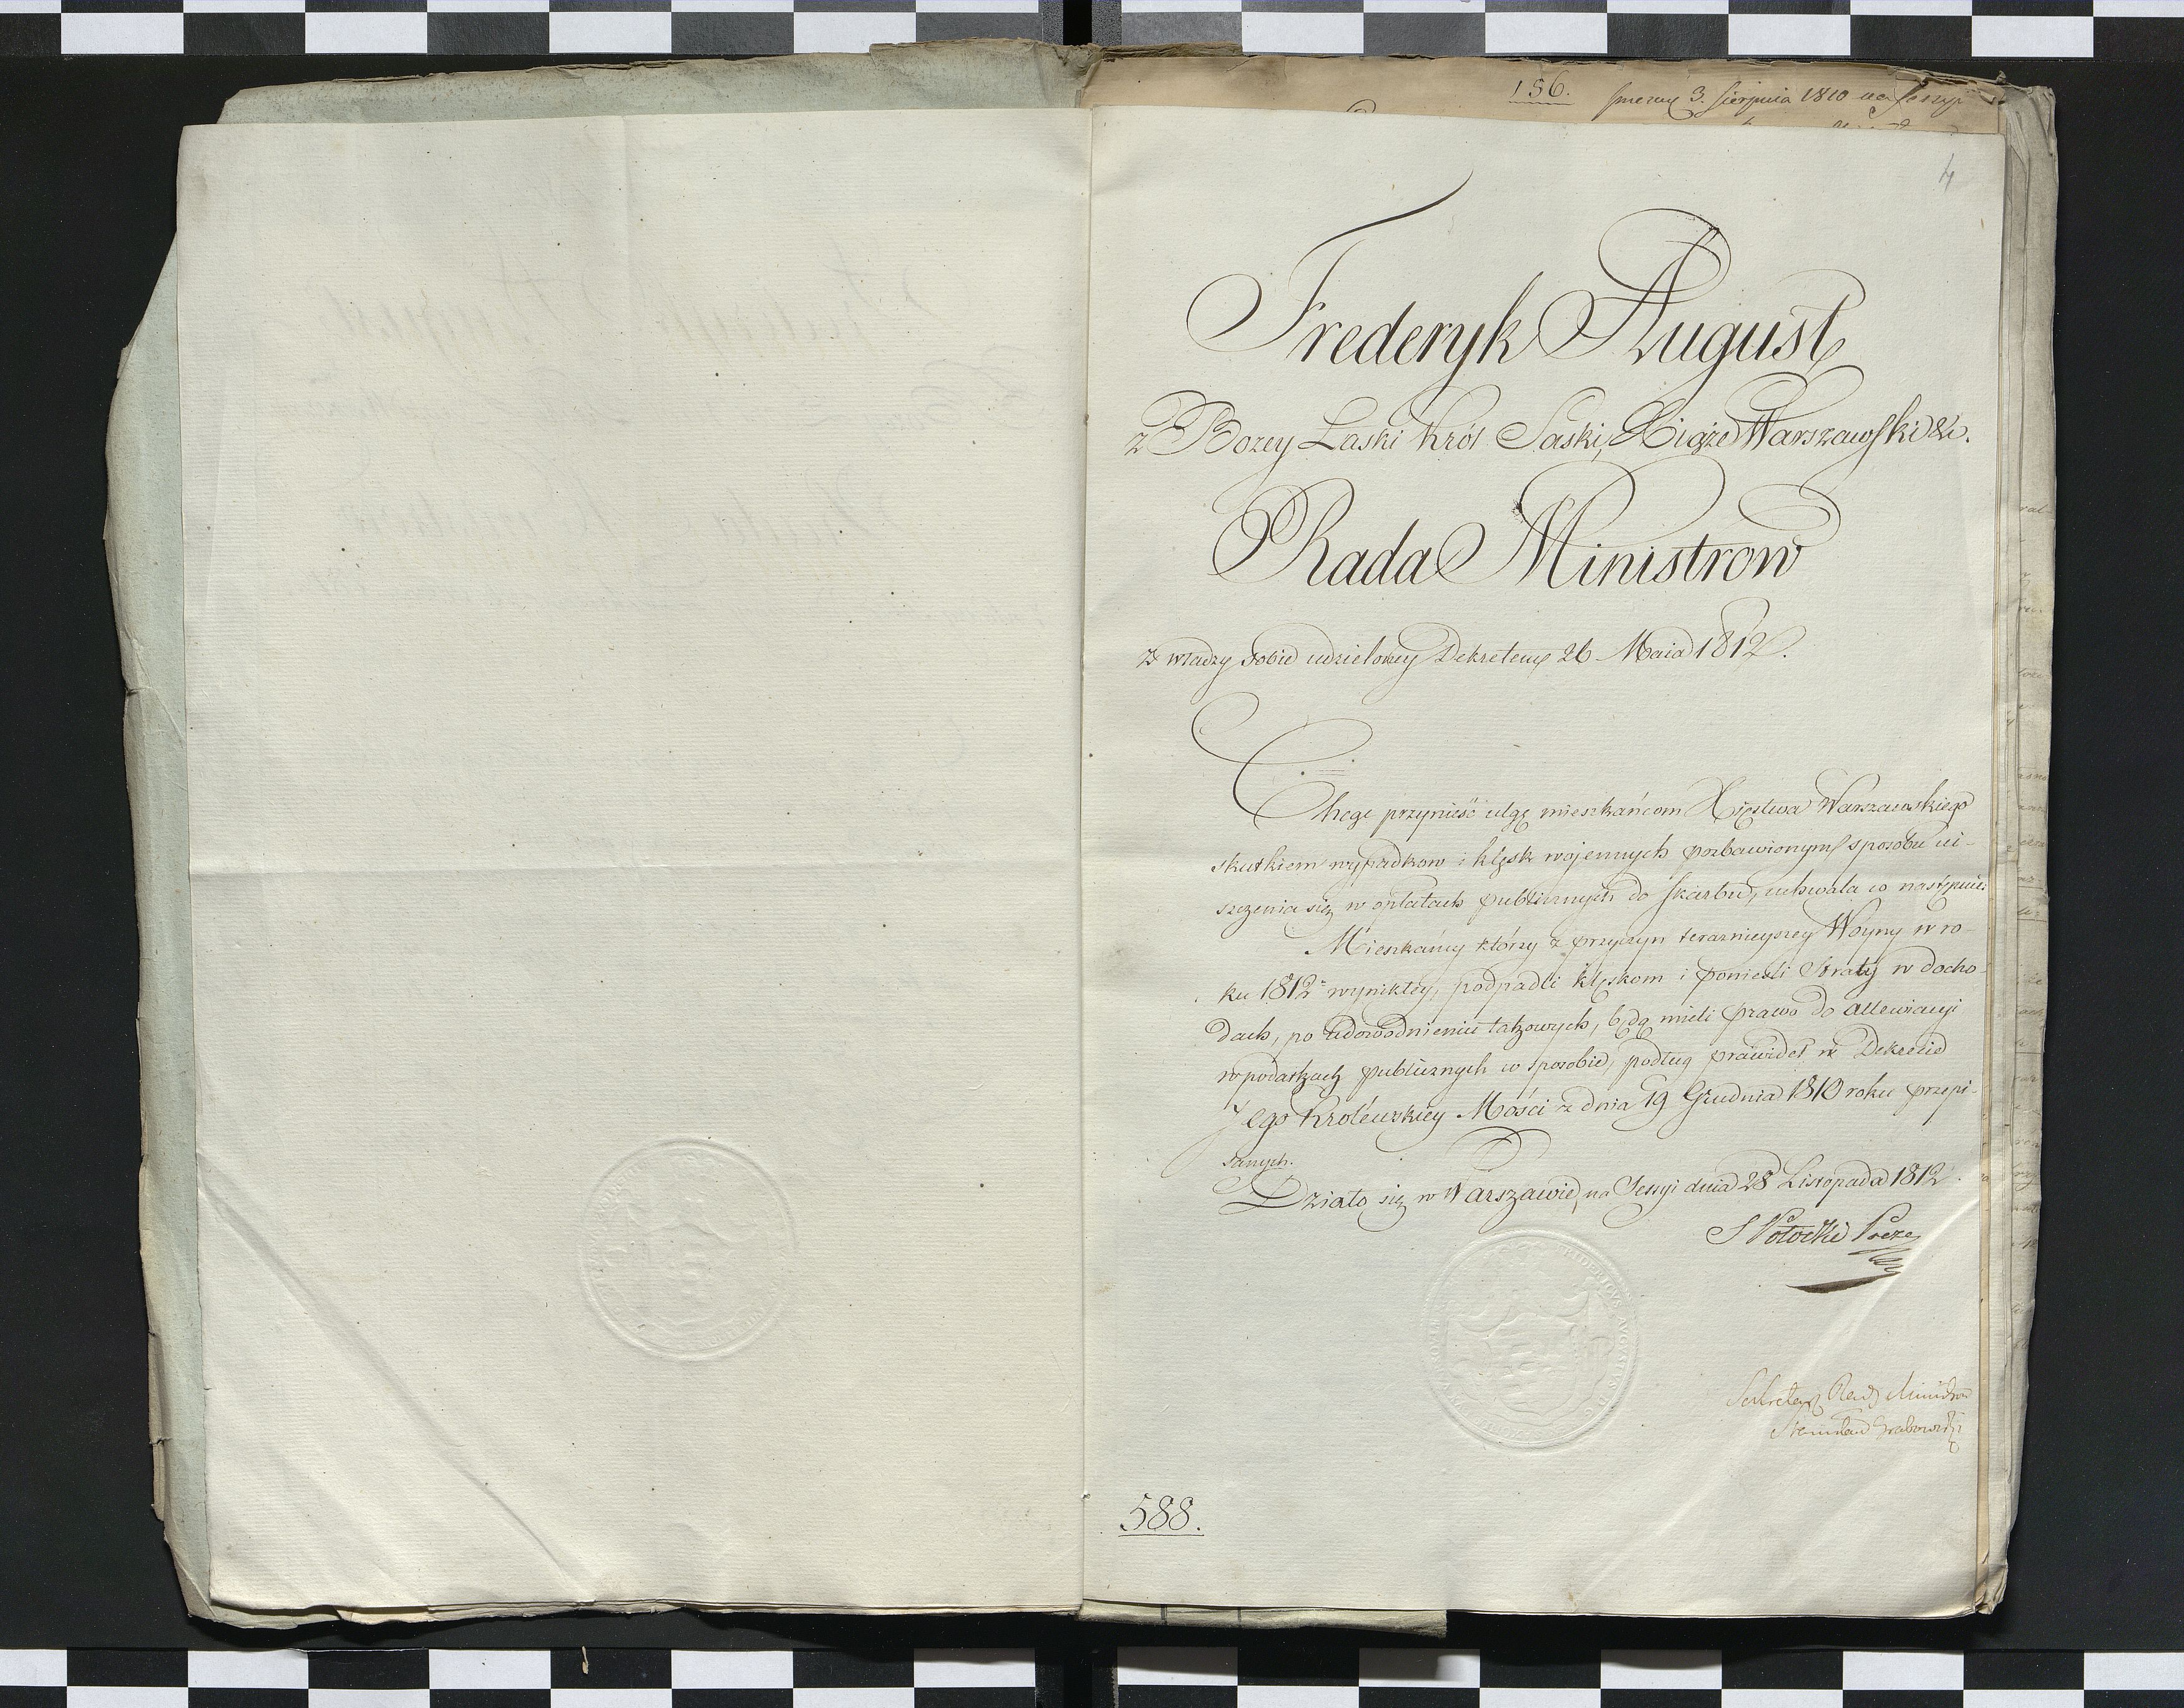 156. 3. Sierpnia 1810 na
4
Frederyk August
z Bozey Laski Król Saski, Xiąże Warszawski &c.
Rada Ministrow
z władzy sobie udzieloney Dekretem 26 Maia 1812.
Chcąc przynieść ulgę mieszkańcom Xięstwa Warszawskiego
skutkiem wypadkow i klęsk wojennych pozbawionym sposobu ui-
szczenia się w opłatach publicznych do skarbu, uchwala co następuie:
Mieszkańcy którzy z przyczyn teraznieyszey Woyny w ro-
ku 1812 wynikłey, podpadli klęskom i ponieśli Straty w docho-
dach, po udowodnieniu takowych, będą mieli prawo do allewiacyi
w podatkach publicznych w sposobie, podług prawideł w Dekrecie
Jego Królewskiey Mości z dnia 19 Grudnia 1810 roku przepi-
sanych.
Działo się w Warszawie, na Sessyi dnia 28 Listopada 1812.
S Potocki Prezes
FRIDERICVS AVGVSTVS D G
Sekretarz Rady Ministrow
Stanisław Grabowski
588.